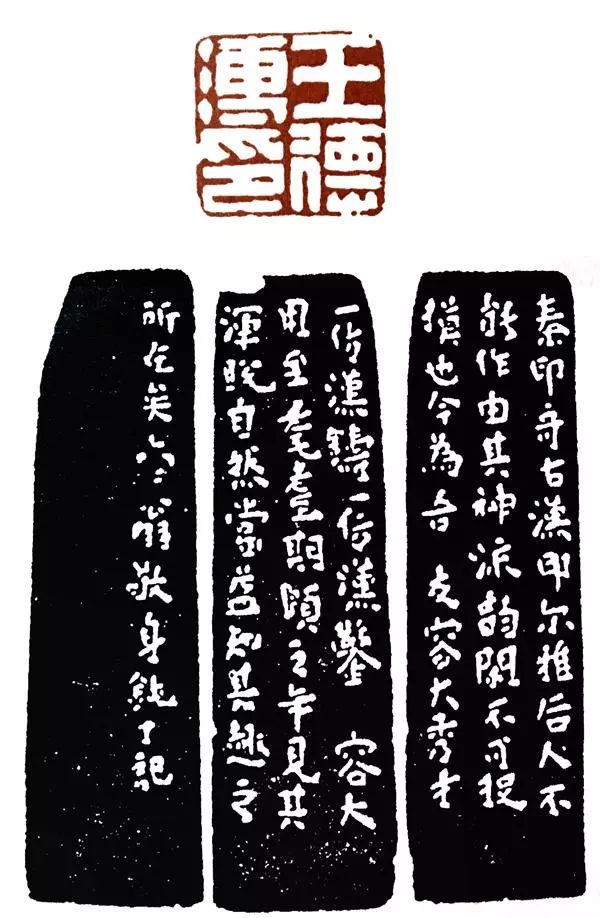 王德
溥印
秦印奇古漢印尔雅后人不
能作由其神流韵閑不可捉
摸也今為吾 友容大秀才
一仿漢鑄一仿漢鑿 容大
用至耄耋期頤之年見其
渾脱自然當益知其趣之
所在矣六翁敬身鈍丁記